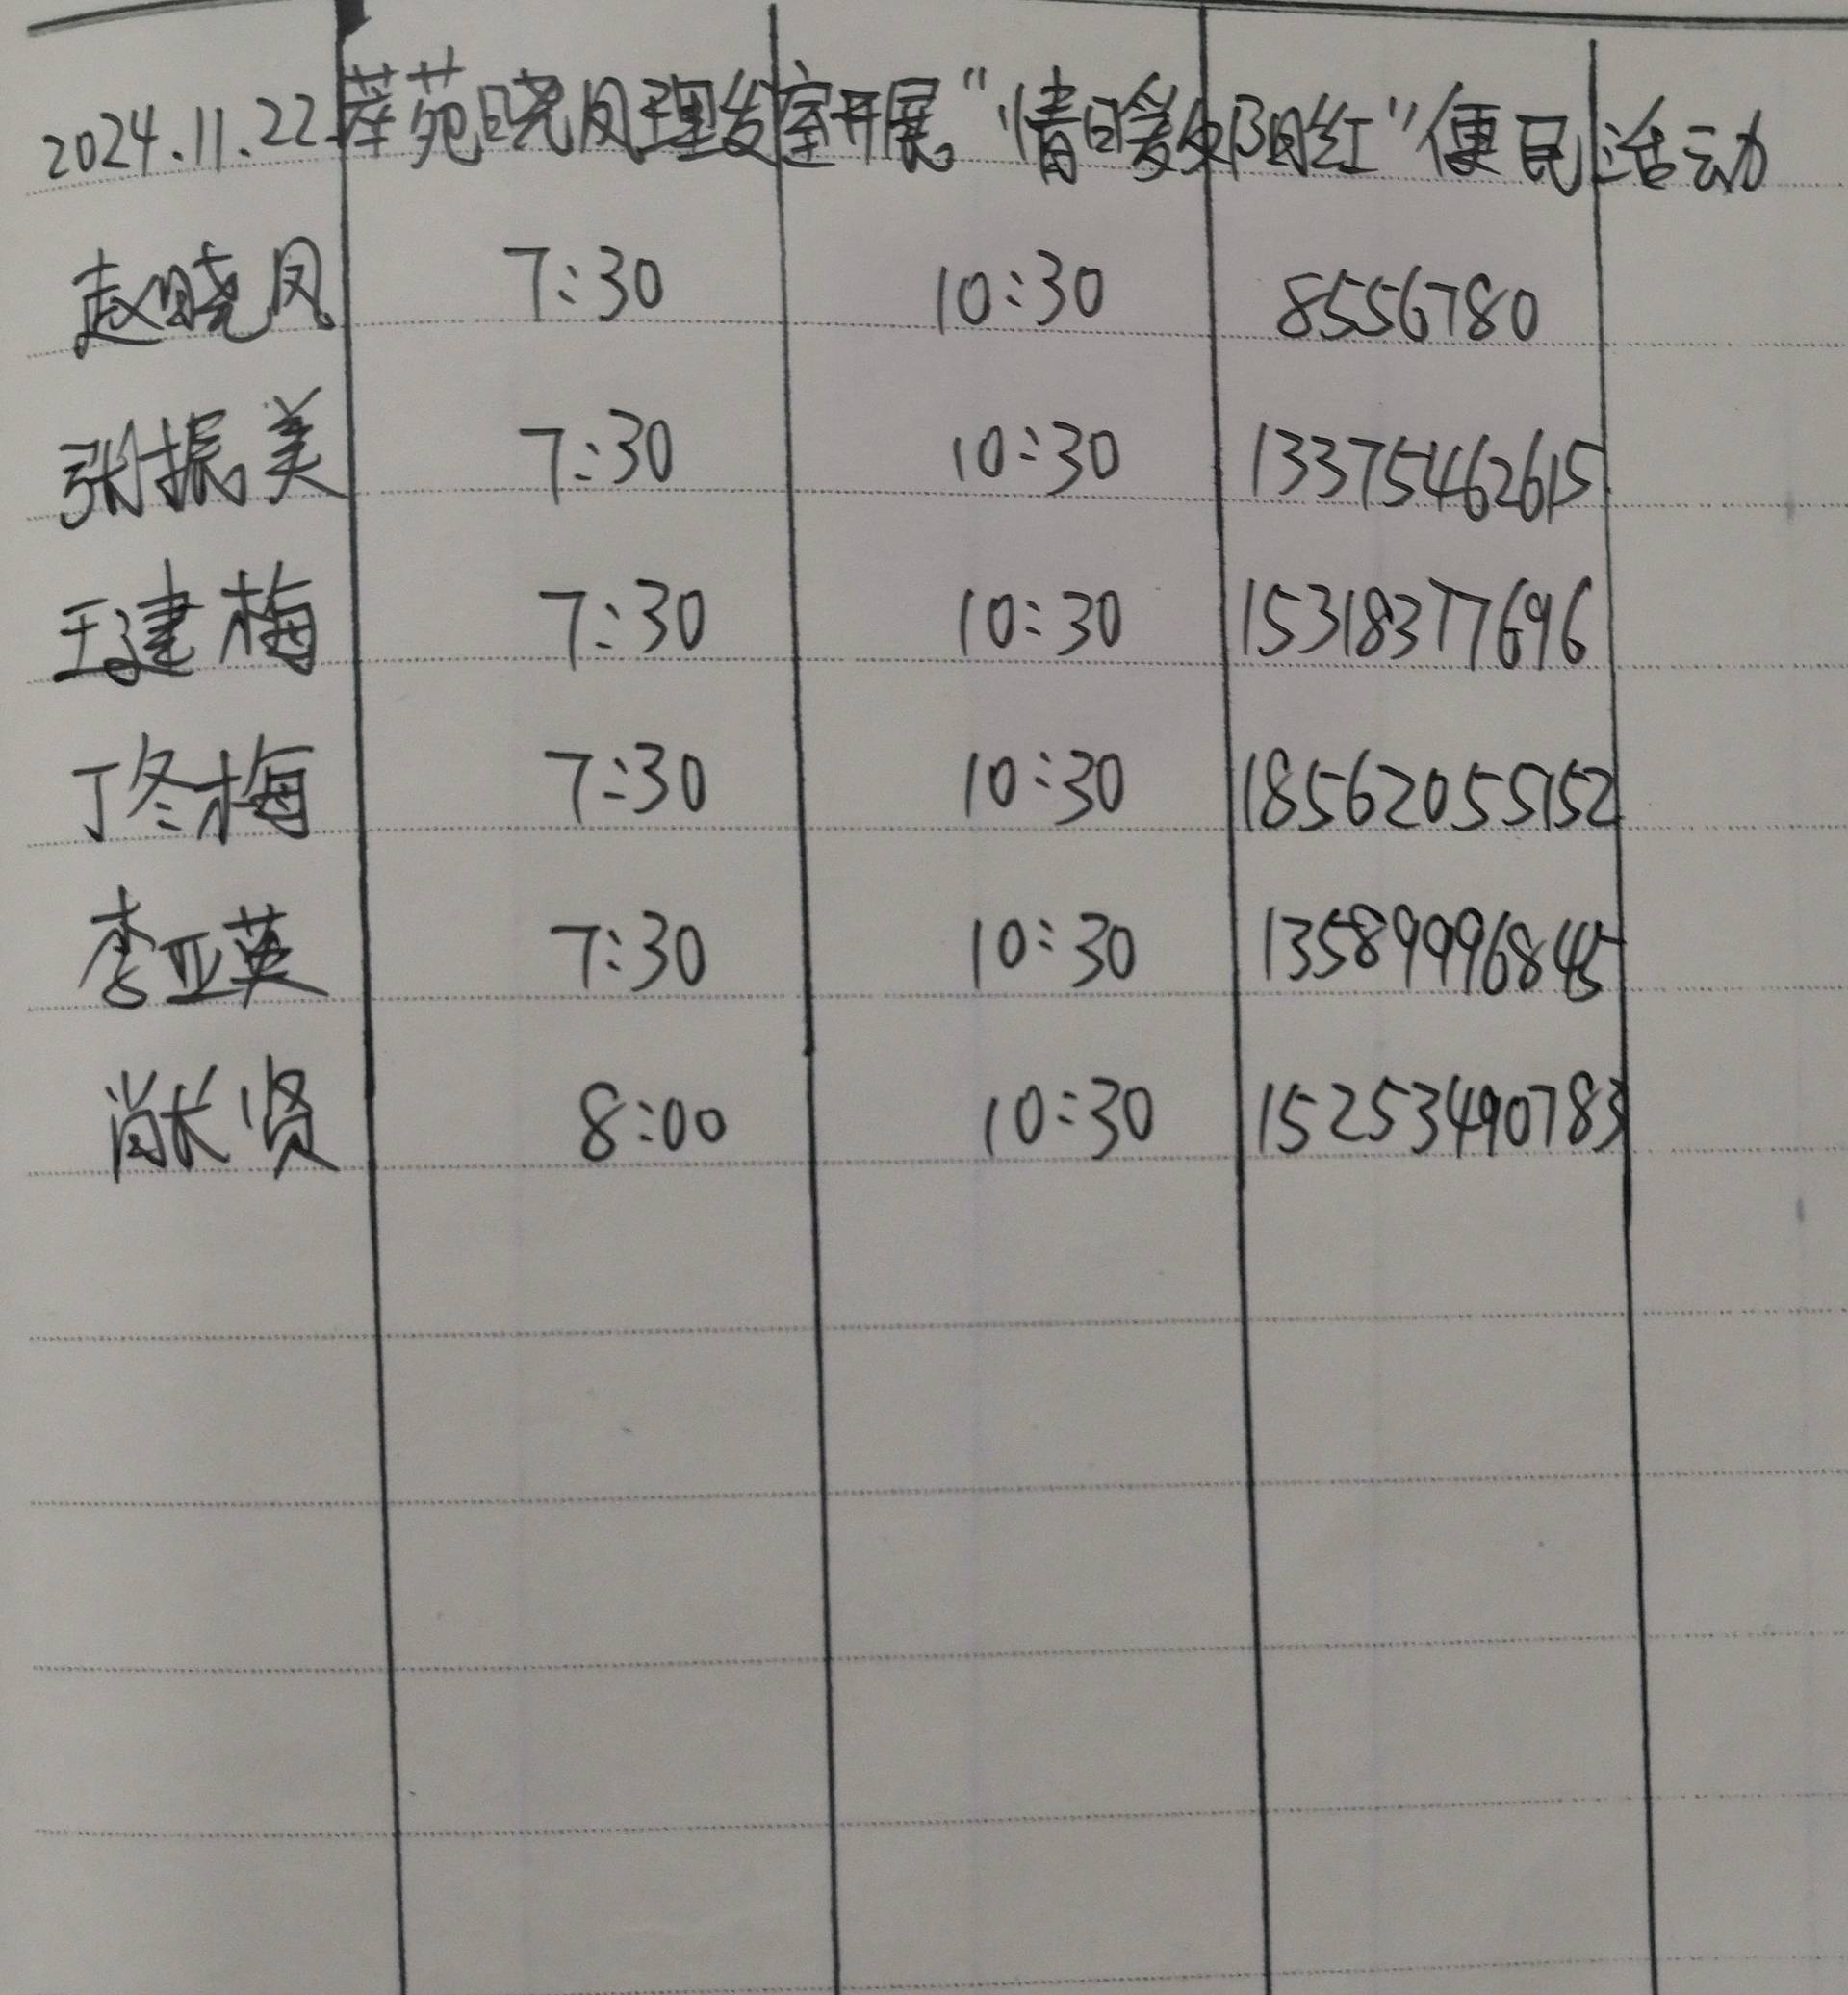 2024.11.22 莘苑晓凤理发室开展“情暖夕阳红”便民活动
赵晓凤 7:30 10:30 8556780
张振美 7:30 10:30 13375462615
王建梅 7:30 10:30 15318377696
丁冬梅 7:30 10:30 18562055152
李亚英 7:30 10:30 13589996845
肖长贤 8:00 10:30 15253490783